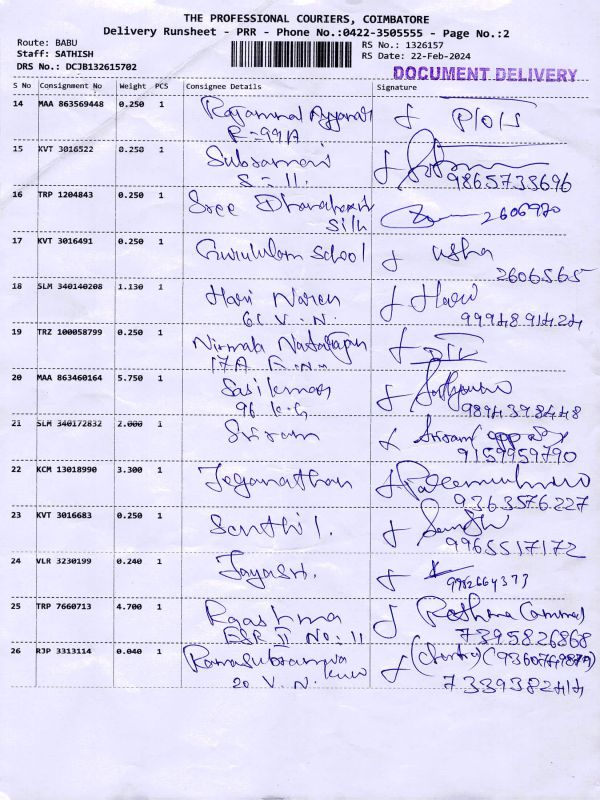 THE PROFESSIONAL COURIERS, COIMBATORE
Delivery Runsheet - PRR - Phone No.:0422-3505555 - Page No.:2
Route: BABU
Staff: SATHISH
DRS No.: DCJB132615702
RS No.: 1326157
RS Date: 22-Feb-2024
DOCUMENT DELIVERY
S No Consignment No Weight PCS Consignee Details Signature
14 MAA 863569448 0.250 1
R-99A
15 KVT 3016522 0.250 1
S-11.
9865733696
16 TRP 1204843 0.250 1 Sree
Silk
2606970
17 KVT 3016491 0.250 1 Gurukulam School Usha
2606565
18 SLM 340140208 1.130 1 Hari Naren Hari
61 V.N.
9994891424
19 TRZ 100058799 0.250 1 Nirmala Natarajan
17A
20 MAA 863460164 5.750 1 Sasikumar
96 K.G
9894398448
21 SLM 340172832 2.000 1 Sriram Sriram
9159959790
22 KCM 13018990 3.300 1 Jeganathan
9363576227
23 KVT 3016683 0.250 1 Senthil.
9965517172
24 VLR 3230199 0.240 1 Jayasri.
9952664373
25 TRP 7660713 4.700 1
ESR II No: 11
7395826868
26 RJP 3313114 0.040 1
20 V.N.
7339382414